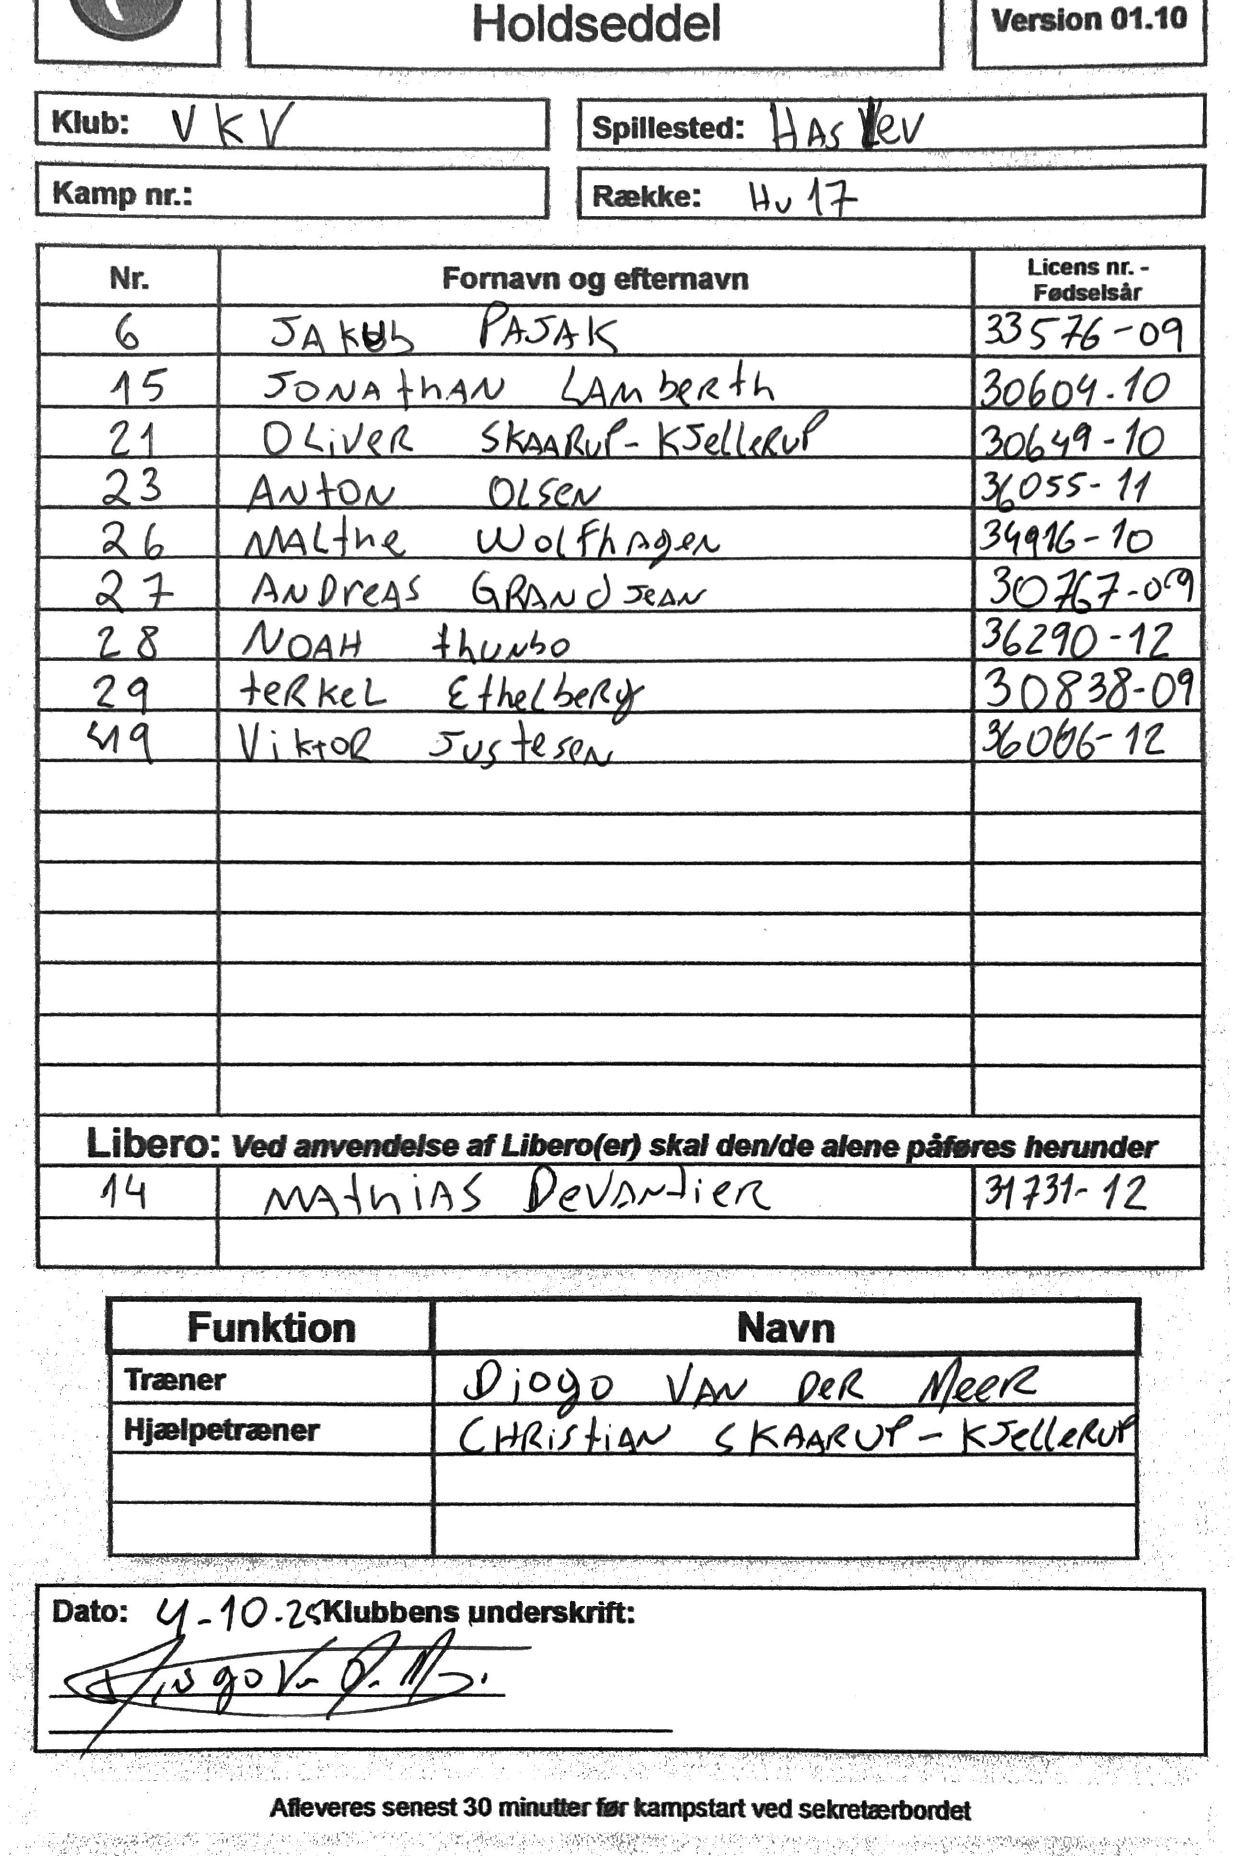 Holdseddel
Version 01.10
Klub: VKV
Spillested: HASLEV
Kamp nr.:
Række: Hu 17
Nr. Fornavn og efternavn Licens nr. - Fødselsår
6 JAKUb PAJAK 33576-09
15 JONAthAN LAMberth 30604-10
21 OLiVeR SKAARUP-KJelleRUP 30649-10
23 ANtON OLSeN 36055-11
26 MALthe WOLFhAgeN 34916-10
27 ANDreAS GRANdJeAN 30767-09
28 NOAH thUNbo 36290-12
29 teRKeL EthelbeRg 30838-09
19 ViKtOR JUStesen 36066-12
Libero: Ved anvendelse af Libero(er) skal den/de alene påføres herunder
14 MAthiAS DeVANtieR 31731-12
Funktion Navn
Træner Diogo VAN DeR MeeR
Hjælpetræner CHRiStiAN SKAARUP-KJelleRUP
Dato: 4-10-25 Klubbens underskrift:
Afleveres senest 30 minutter før kampstart ved sekretærbordet